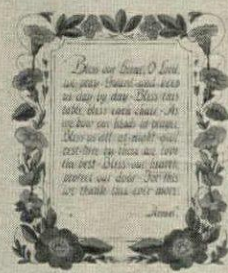 Bless our home, O Lord,
we pray. Guard and keep
us day by day. Bless this
table, bless each chair. As
we bow our heads in prayer.
Bless us all at night our
rest-time by those we love
the best. Bless our hearth,
protect our door. For this
we thank thee ever more.
Amen.